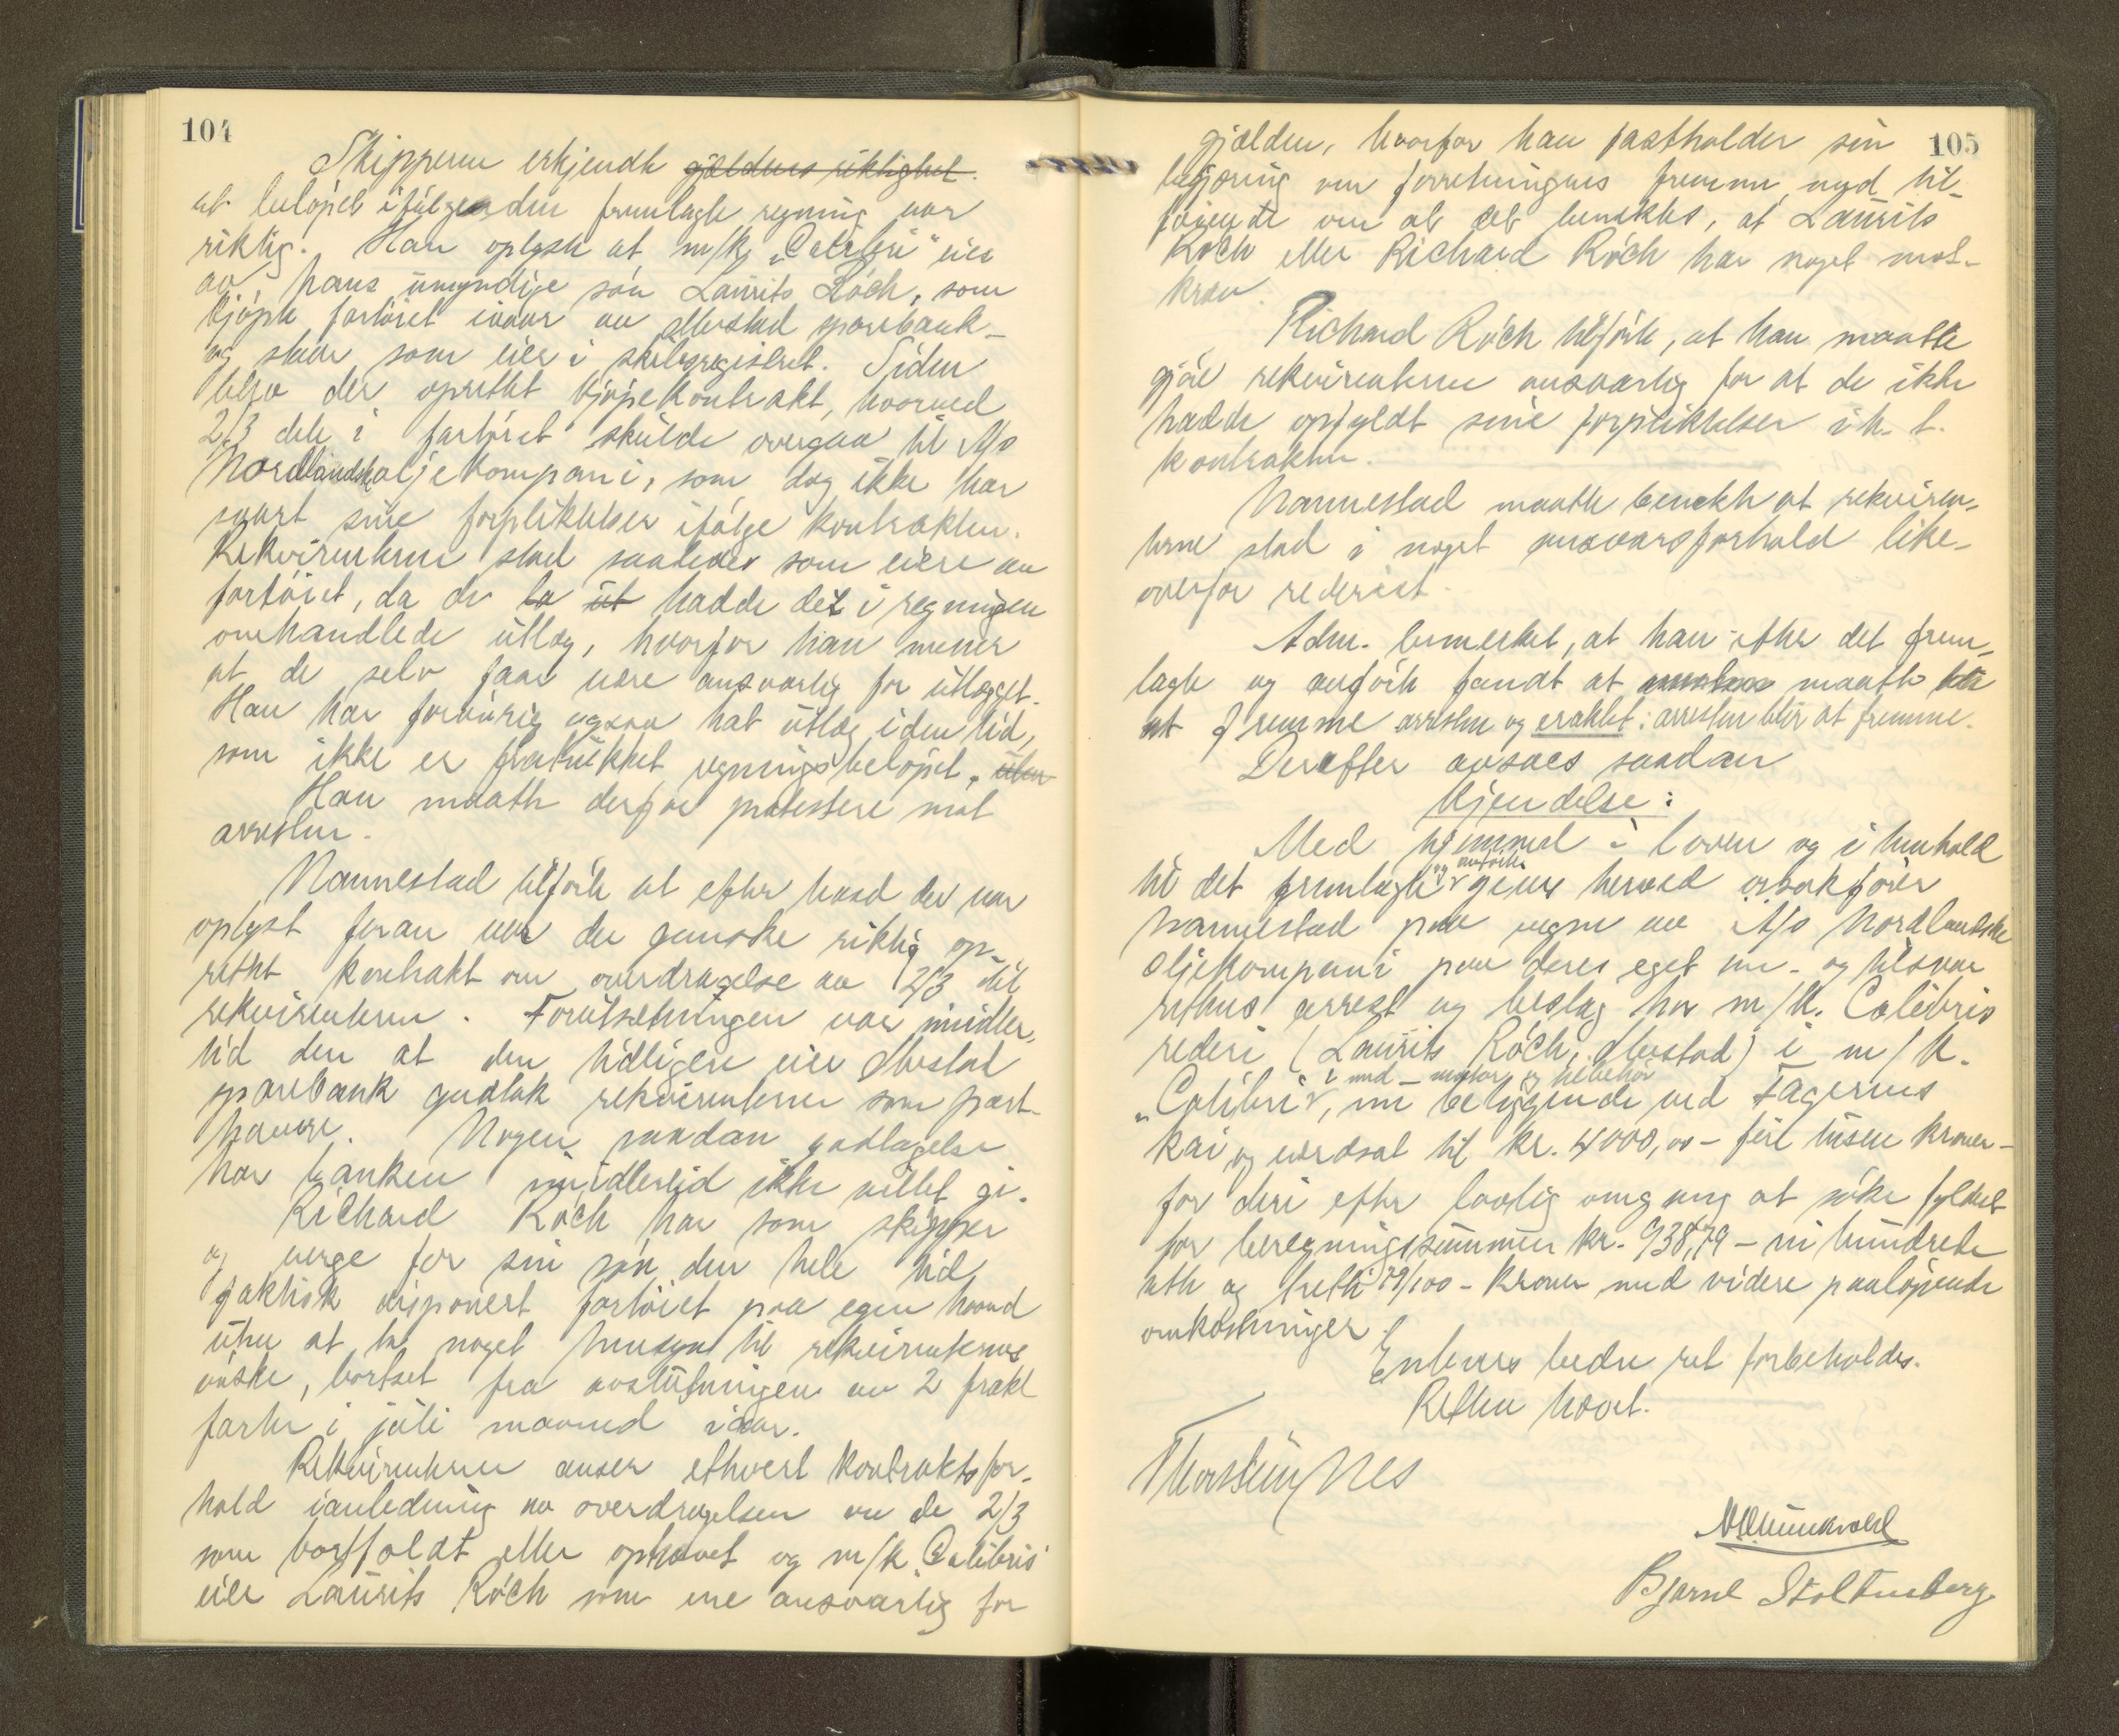 104
Skipperen erkjendte gjældens riktighet.
at beløpet ifølge den fremlagte regning var
riktig. Han oplyste at m/k „Colibri" eies
av hans umyndige søn Laurits Röch, som
kjøpte fartøiet ivaar av Mestad sparebank
og staar som eier i skibsregistret. Siden
blev der oprettet kjøpekontrakt, hvorved
2/3 dele i fartøiet skulde overgaa til A/s
Nordlandske oljekompani, som dog ikke har
svart sine forpliktelser ifølge kontrakten.
Rekvirenterne stod saaledes som eiere av
fartøiet, da de la ut hadde det i regningen
omhandlede utlæg, hvorfor han mener
at de selv faar være ansvarlig for utlægget.
Han har forøvrig ogsaa hat utlæg i den tid,
som ikke er fratrukket regningsbeløpet. uten
Han maatte derfor protestere mot
arresten.
Nannestad tilførte at efter hvad der var
oplyst foran var der ganske riktig op-
rettet kontrakt om overdragelse av 2/3 til
rekvirenterne. Forutsetningen var imidler-
tid den at den tidligere eier Mestad
sparebank godtok rekvirenterne som part-
havere. Nogen saadan godtagelse
har banken imidlertid ikke villet gi.
Richard Röch har som skipper
og verge for sin søn den hele tid
faktisk disponert fartøiet paa egen haand
uten at ta noget hensyn til rekvirenternes
ønske, bortset fra avslutningen av 2 frakt
farter i juli maaned iaar.
Rekvirenterne anser ethvert kontraktsfor-
hold ianledning av overdragelsen av de 2/3
som bortfaldt eller ophævet og m/k „Colibris"
eier Laurits Röch som ene ansvarlig for
105
gjælden, hvorfor han fastholder sin
begjæring om forretningens fremme, med til-
føiende om at det benektes, at Laurits
Röch eller Richard Röch har noget mot-
krav.
Richard Röch tilførte, at han maatte
gjøre rekvirenterne ansvarlig for at de ikke
hadde opfyldt sine forpliktelser i h. t.
kontrakten.
Nannestad maatte benekte at rekviren-
terne stod i noget ansvarsforhold like-
overfor rederiet.
Adm. bemerket, at han efter det frem-
lagte og anførte fandt at maatte
at fremme arresten og eraktet: arresten blir at fremme.
Derefter avsaes saadan
Kjendelse:
Med hjemmel i loven og i henhold
til det fremlagte og anførte gives herved orsakfører
Nannestad paa vegne av A/s Nordlandske
Oljekompani paa deres eget an- og tilsvar
rettens arrest og beslag hos m/k. Colibris
rederi (Laurits Röch, Mestad) i m/k.
„Colibri" med motor og tilbehør, nu beliggende ved Fagernes
kai og værdsat til kr. 4000,00 - fire tusen kroner -
for deri efter lovlig omgang at søke fyldest
for beregningssummen kr. 938,79 - ni hundrede
otte og tretti 79/100 - kroner med videre paaløpende
omkostninger.
Enhvers bedre ret forbeholdes.
Retten hævet.
Thorstein Nes
Bjarne Stoltenberg